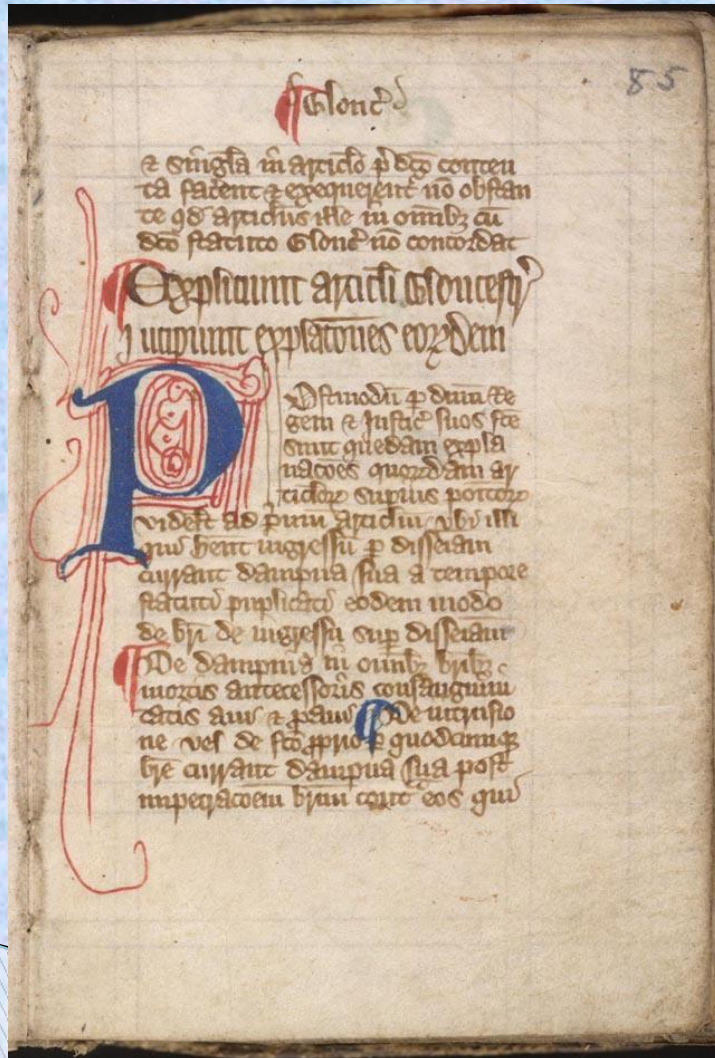 85
Glouc̄
& singl̄a in articlo p̄dc̄o conten
ta facent & exequerent̄ nō obstan
te qd̄ articlus ille in omnibꝫ cū
dc̄o statuto Glouc̄ nō concordat
Expliciunt articli Gloucestr̄
Incipiunt explac̄ones eoꝝdem
Postmodū ꝑ dnūm Re
gem & Justic̄ suos fc̄e
sunt quedam expla
nac̄oes quorūdam ar
ticloꝝ supius po᷑itoꝝ
videlt̄ ad p̄mum articlm̄ vbi illi
qui hēnt ingressū ꝑ disseiam̄
currant dampna sua a tempore
statuti puplicati eodem modo
de br̄i de ingressu suꝑ disseiam̄
De dampnis in omnibꝫ br̄ibꝫ
mortis antecessoris consanguini
tatis aui & ꝓaui De intrusio
ne vel de fc̄o ꝓprio ꝑ quodcumqꝫ
br̄e currant dampna sua post
impetrac̄oem br̄ium cont̄ eos qui